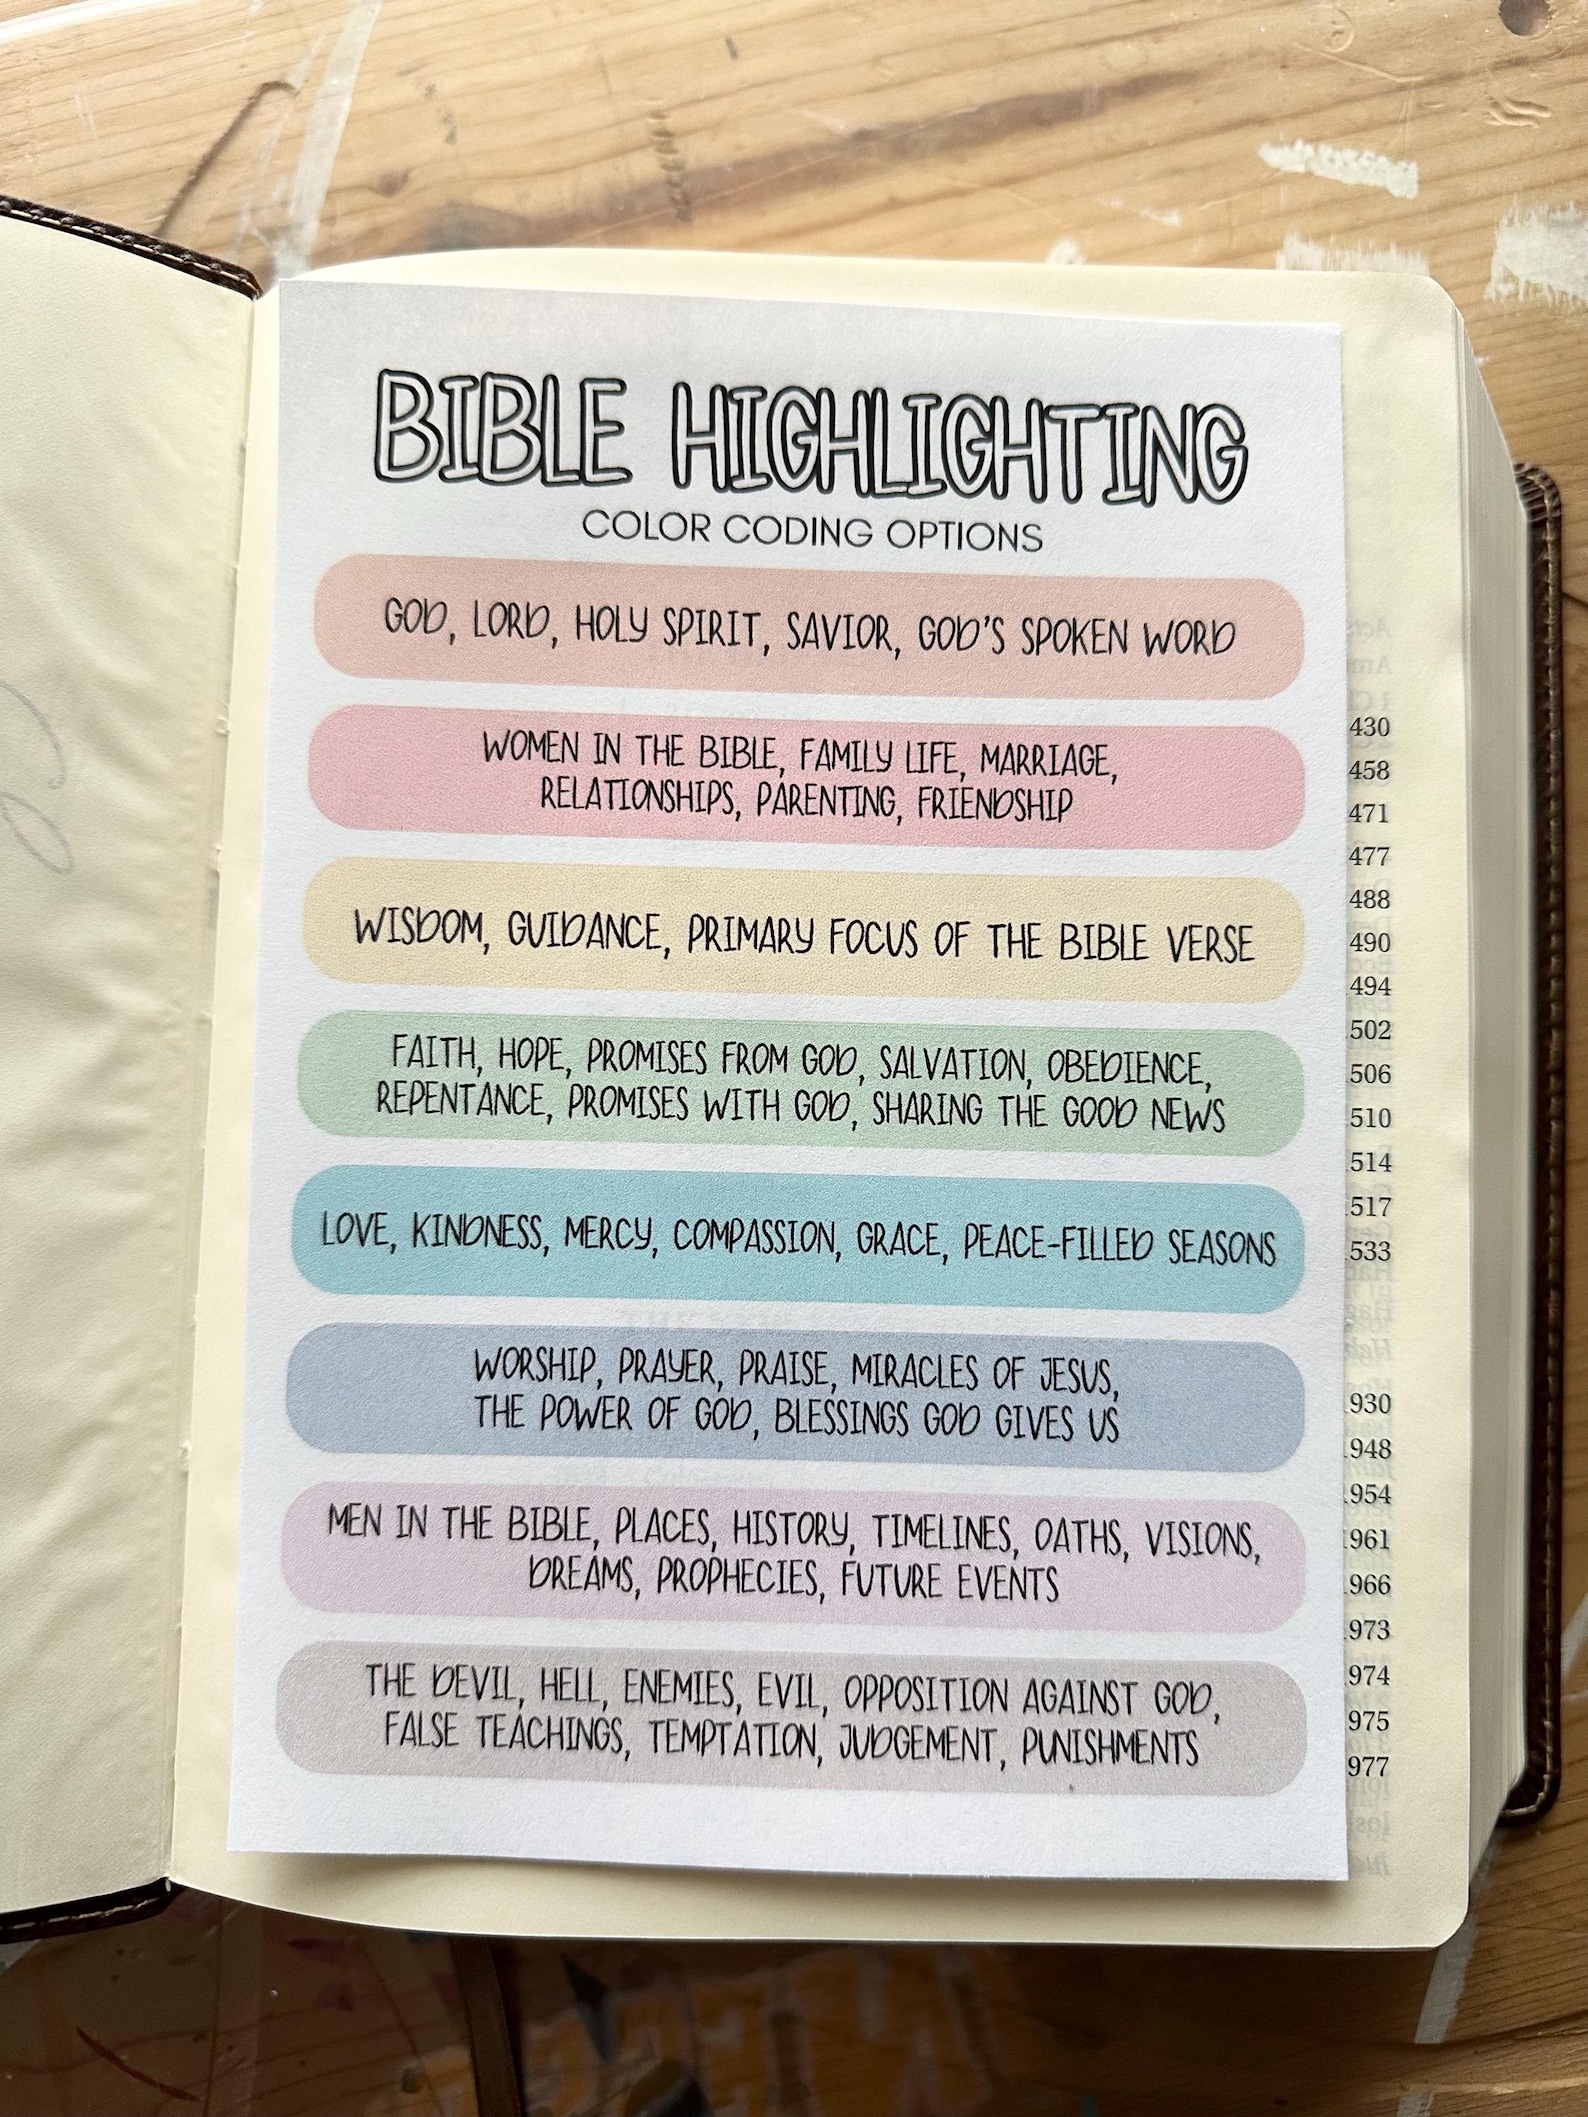 BIBLE HIGHLIGHTING
COLOR CODING OPTIONS
GOD, LORD, HOLY SPIRIT, SAVIOR, GOD'S SPOKEN WORD
WOMEN IN THE BIBLE, FAMILY LIFE, MARRIAGE,
RELATIONSHIPS, PARENTING, FRIENDSHIP
WISDOM, GUIDANCE, PRIMARY FOCUS OF THE BIBLE VERSE
FAITH, HOPE, PROMISES FROM GOD, SALVATION, OBEDIENCE,
REPENTANCE, PROMISES WITH GOD, SHARING THE GOOD NEWS
LOVE, KINDNESS, MERCY, COMPASSION, GRACE, PEACE-FILLED SEASONS
WORSHIP, PRAYER, PRAISE, MIRACLES OF JESUS,
THE POWER OF GOD, BLESSINGS GOD GIVES US
MEN IN THE BIBLE, PLACES, HISTORY, TIMELINES, OATHS, VISIONS,
DREAMS, PROPHECIES, FUTURE EVENTS
THE DEVIL, HELL, ENEMIES, EVIL, OPPOSITION AGAINST GOD,
FALSE TEACHINGS, TEMPTATION, JUDGEMENT, PUNISHMENTS
430
458
471
477
488
490
494
502
506
510
514
517
533
930
948
954
961
966
973
974
975
977